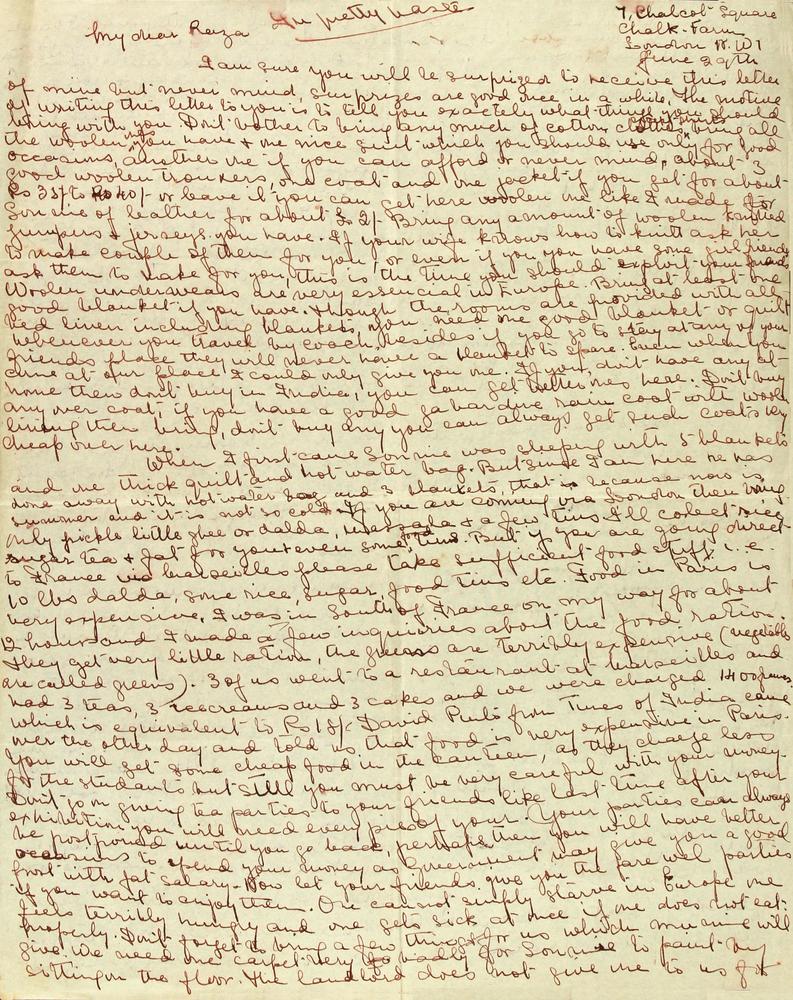 In pretty haste
7, Chalcot Square
Chalk-Farm
London N.W1
June 29th
My dear Raza
I am sure you will be surprized to receive this letter
of mine but never mind, surprizes are good once in a while. The motive
of writing this letter to you is to tell you exactely what things you should
bring with you. Don't bother to bring any much of cotton clothes, bring all
the woolen you have & one nice suit which you should use only for good
occasions, another one if you can afford or never mind, about 3
good woolen trousers, one coat and one jacket if you get for about
Rs 35/- to Rs 40/- or leave it you can get here woolen one like I made for
Sonnie of leather for about £ 2/- Bring any amount of woolen knitted
jumpers & jerseys you have. If your wife knows how to knitt ask her
to make couple of them for you, or even if you have some girl friends
ask them to make for you, this is the time you should exploit your friends
Woolen underwears are very essencial in Europe. Bring at least one
good blanket if you have. though the rooms are provided with all
bed linen including blankets, you need one good blanket or quilt
whenever you travel by coach, besides if you go to stay at any of your
friends place they will never have a blanket to spare. Even when you
come at our place I could only give you one. If you don't have any at
home then don't buy in India, you can get better ones here. Don't buy
any over coat, if you have a good gabardine rain coat with woolen
lining then bring, don't buy any you can always get such coats very
cheap over here.
When I first came Sonnie was sleeping with 5 blankets
and one thick quilt and hot water bag. But since I am here he has
done away with hot water bag and 3 blankets, that is because now is
summer and it is not so cold. If you are coming via London then bring
only pickle little ghee or dalda, masala & a few tins I'll colect rice
sugar tea & fat for you & even some tins. But if you are going direct
to France via Marseilles please take sufficient food stuff, i.e.
10 lbs dalda, some rice, sugar, food tins etc. Food in Paris is
very expensive. I was in South of France on my way for about
12 hours and I made a few inquiries about the food ration.
they get very little ration, the greens are terribly expensive (vegetables
are called greens). 3 of us went to a restaurant at Marseilles and
had 3 teas, 3 icecreams and 3 cakes and we were charged 1400 francs
which is equivalent to Rs 18/- David Pinto from Times of India came
over the other day and told us that food is very expensive in Paris.
You will get some cheap food in the canteen, as they charge less
for the students but still you must be very careful with your money.
Don't go on giving tea parties to your friends like last time after your
exhibition you will need every pie of your. Your parties can always
be postponed until you go back, perhaps then you will have better
occasions to spend your money as Government may give you a good
post with fat salary. Now let your friends give you the fare wel parties
if you want to enjoy them. One cannot simply starve in Europe one
feels terribly hungry and one gets sick at once if one does not eat
properly. Don't forget to bring a few things for us which mummie will
give. We need one carpet very badly for Sonnie to paint by
sitting on the floor. the landlord does not give one to us for